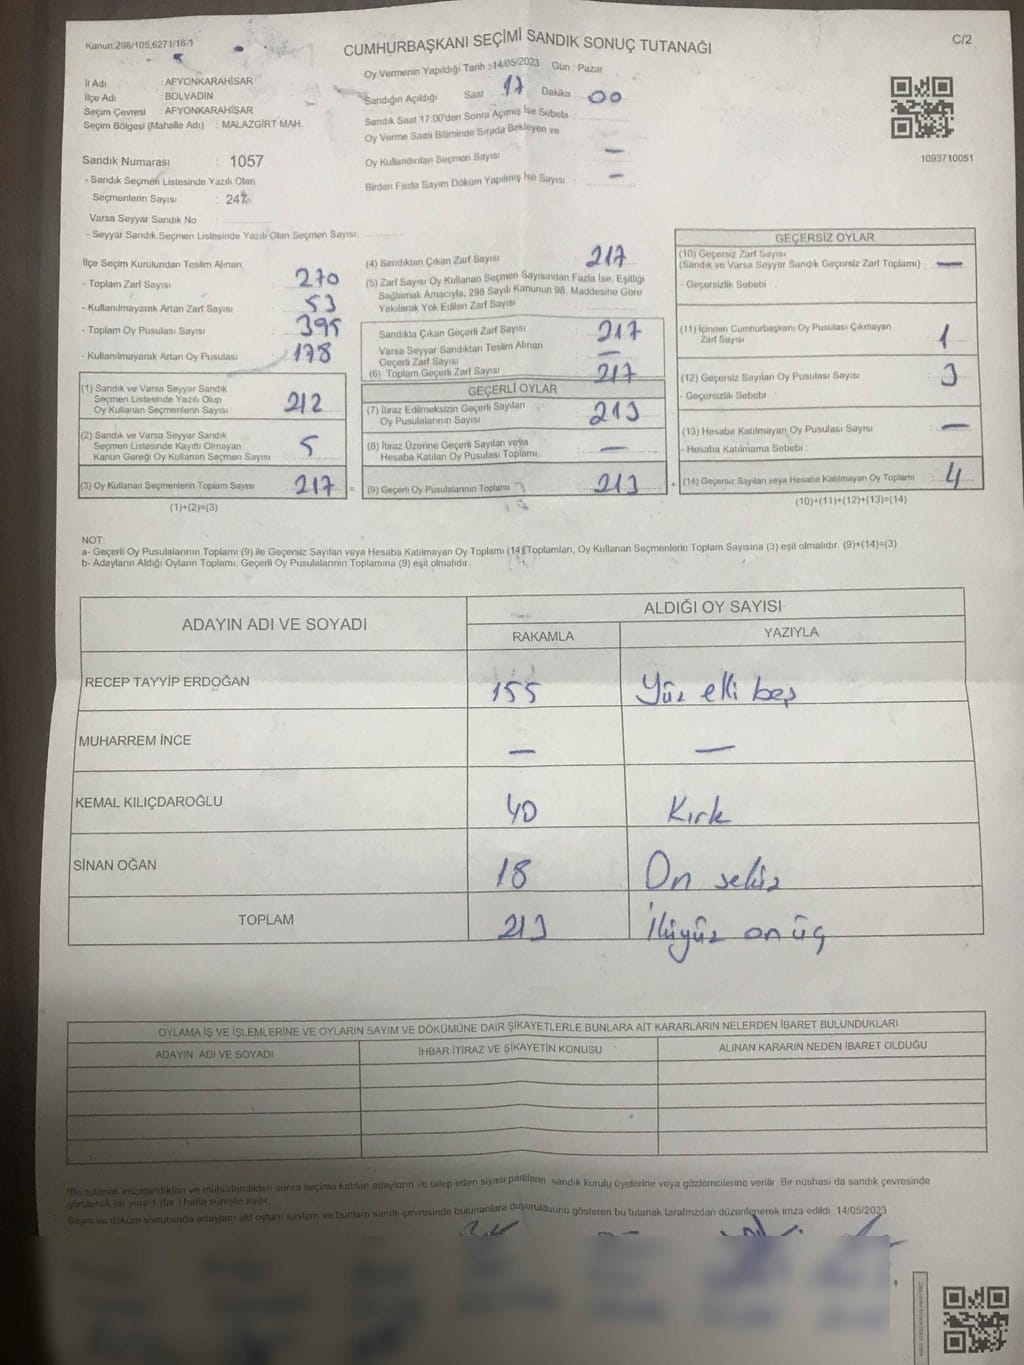 Kanun:298/105,6271/18-1
CUMHURBAŞKANI SEÇİMİ SANDIK SONUÇ TUTANAĞI
C/2
Oy Vermenin Yapıldığı Tarih :14/05/2023 Gün : Pazar
İl Adı : AFYONKARAHİSAR
İlçe Adı : BOLVADİN
Seçim Çevresi : AFYONKARAHİSAR
Seçim Bölgesi (Mahalle Adı) : MALAZGİRT MAH.
Sandığın Açıldığı Saat 17 Dakika : 00
Sandık Saat 17:00'den Sonra Açımış İse Sebebi
Oy Verme Saati Bitiminde Sırada Bekleyen ve
Oy Kullandırılan Seçmen Sayısı —
Birden Fazla Sayım Döküm Yapılmış İse Sayısı —
1093710051
Sandık Numarası : 1057
- Sandık Seçmen Listesinde Yazılı Olan
Seçmenlerin Sayısı : 247
Varsa Seyyar Sandık No
- Seyyar Sandık Seçmen Listesinde Yazılı Olan Seçmen Sayısı:
İlçe Seçim Kurulundan Teslim Alınan
- Toplam Zarf Sayısı 270
- Kullanılmayarak Artan Zarf Sayısı 53
- Toplam Oy Pusulası Sayısı 395
- Kullanılmayarak Artan Oy Pusulası 178
(1) Sandık ve Varsa Seyyar Sandık
Seçmen Listesinde Yazılı Olup
Oy Kullanan Seçmenlerin Sayısı 212
(2) Sandık ve Varsa Seyyar Sandık
Seçmen Listesinde Kayıtlı Olmayan
Kanun Gereği Oy Kullanan Seçmen Sayısı 5
(3) Oy Kullanan Seçmenlerin Toplam Sayısı 217 =
(1)+(2)=(3)
(4) Sandıktan Çıkan Zarf Sayısı 217
(5) Zarf Sayısı Oy Kullanan Seçmen Sayısından Fazla İse, Eşitliği
Sağlamak Amacıyla, 298 Sayılı Kanunun 98. Maddesine Göre
Yakılarak Yok Edilen Zarf Sayısı
Sandıkta Çıkan Geçerli Zarf Sayısı 217
Varsa Seyyar Sandıktan Teslim Alınan
Geçerli Zarf Sayısı —
(6) Toplam Geçerli Zarf Sayısı 217
GEÇERLİ OYLAR
(7) İtiraz Edilmeksizin Geçerli Sayılan
Oy Pusulalarının Sayısı 213
(8) İtiraz Üzerine Geçerli Sayılan veya
Hesaba Katılan Oy Pusulası Toplamı —
(9) Geçerli Oy Pusulalarının Toplamı 213 +
GEÇERSİZ OYLAR
(10) Geçersiz Zarf Sayısı
(Sandık ve Varsa Seyyar Sandık Geçersiz Zarf Toplamı) : —
- Geçersizlik Sebebi :
(11) İçinden Cumhurbaşkanı Oy Pusulası Çıkmayan
Zarf Sayısı 1
(12) Geçersiz Sayılan Oy Pusulası Sayısı 3
- Geçersizlik Sebebi
(13) Hesaba Katılmayan Oy Pusulası Sayısı —
- Hesaba Katılmama Sebebi :
(14) Geçersiz Sayılan veya Hesaba Katılmayan Oy Toplamı 4
(10)+(11)+(12)+(13)=(14)
NOT:
a- Geçerli Oy Pusulalarının Toplamı (9) ile Geçersiz Sayılan veya Hesaba Katılmayan Oy Toplamı (14)Toplamları, Oy Kullanan Seçmenlerin Toplam Sayısına (3) eşit olmalıdır. (9)+(14)=(3)
b- Adayların Aldığı Oyların Toplamı, Geçerli Oy Pusulalarının Toplamına (9) eşit olmalıdır.
ADAYIN ADI VE SOYADI
ALDIĞI OY SAYISI
RAKAMLA YAZIYLA
RECEP TAYYİP ERDOĞAN 155 Yüz elli beş
MUHARREM İNCE — —
KEMAL KILIÇDAROĞLU 40 Kırk
SİNAN OĞAN 18 On sekiz
TOPLAM 213 İkiyüz on üç
OYLAMA İŞ VE İŞLEMLERİNE VE OYLARIN SAYIM VE DÖKÜMÜNE DAİR ŞİKAYETLERLE BUNLARA AİT KARARLARIN NELERDEN İBARET BULUNDUKLARI
ADAYIN ADI VE SOYADI İHBAR İTİRAZ VE ŞİKAYETİN KONUSU ALINAN KARARIN NEDEN İBARET OLDUĞU
*Bu tutanak imzalandıktan ve mühürlendikten sonra seçime katılan adayların ve talep eden siyasi partilerin sandık kurulu üyelerine veya gözlemcilerine verilir. Bir nüshası da sandık çevresinde
görülecek bir yere 1 (bir ) hafta süreyle asılır.
Sayım ve döküm sonucunda adayların aldığı oyların sayılarını ve bunların sandık çevresinde bulunanlara duyurulduğunu gösteren bu tutanak tarafımızdan düzenlenerek imza edildi. 14/05/2023